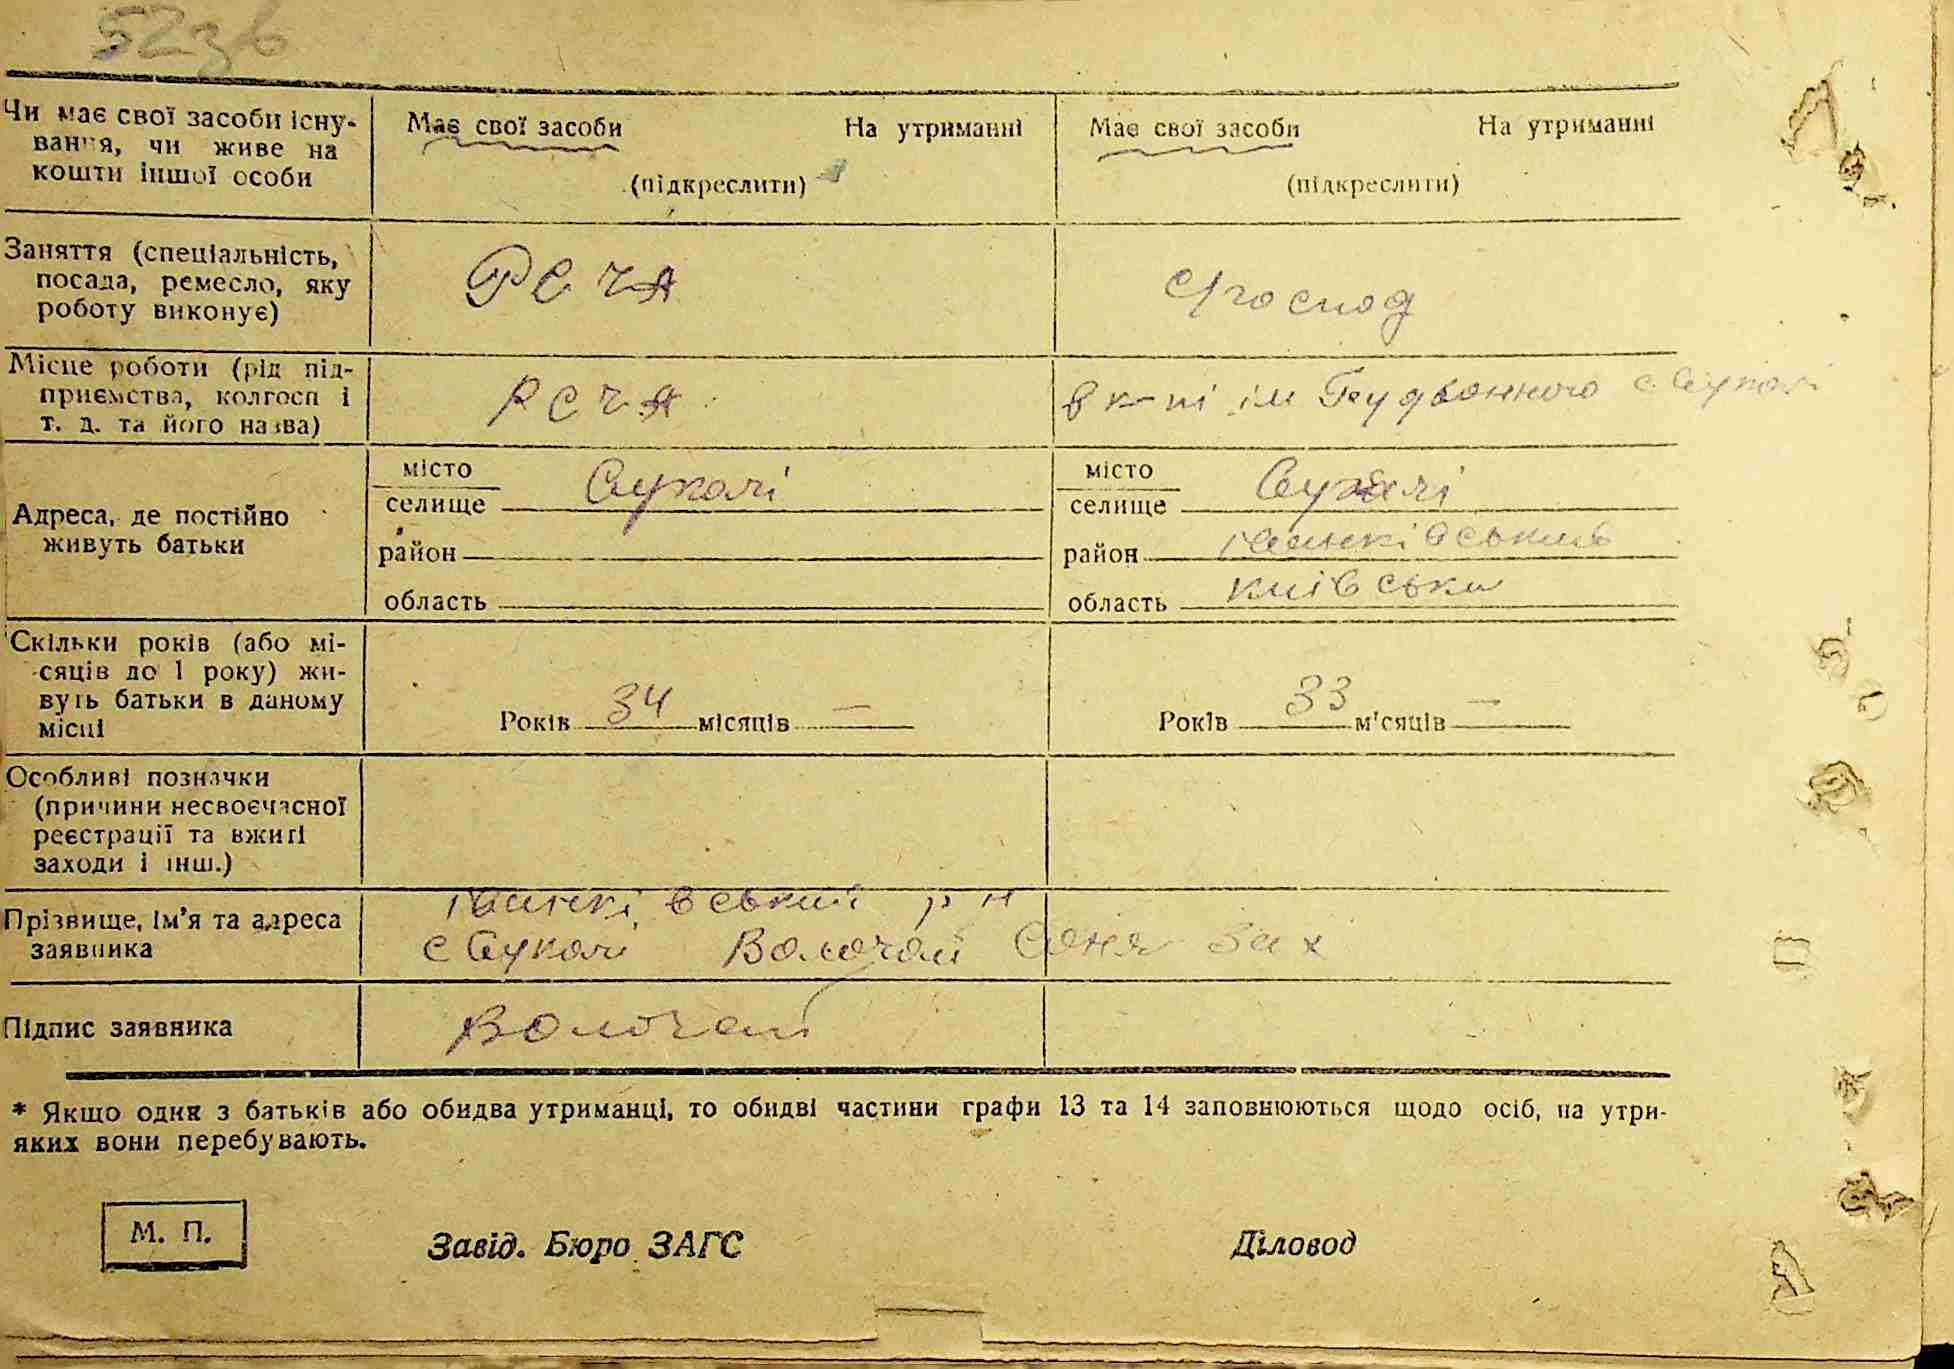 52зв
Чи має свої засоби існу-
вання, чи живе на
кошти іншої особи
Має свої засоби На утриманні
(підкреслити)
Має свої засоби На утриманні
(підкреслити)
Заняття (спеціальність,
посада, ремесло, яку
роботу виконує)
РСЧА
с/господ
Місце роботи (рід під-
приємства, колгосп і
т. д. та його назва)
РСЧА
в к-пі ім Будьонного с Сукачі
Адреса, де постійно
живуть батьки
місто
селище Сукачі
район
область
місто
селище Сукачі
район Іванківський
область київська
Скільки років (або мі-
сяців до 1 року) жи-
вуть батьки в даному
місці
Років 34 місяців —
Років 33 м'сяців —
Особливі позначки
(причини несвоєчасної
реєстрації та вжиті
заходи і інш.)
Прізвище, ім'я та адреса
заявника
Іванківський р н
с Сукачі Волочай Соня Зах
Підпис заявника
Волочай
* Якщо один з батьків або обидва утриманці, то обидві частини графи 13 та 14 заповнюються щодо осіб, на утри-
яких вони перебувають.
М. П.
Завід. Бюро ЗАГС
Діловод